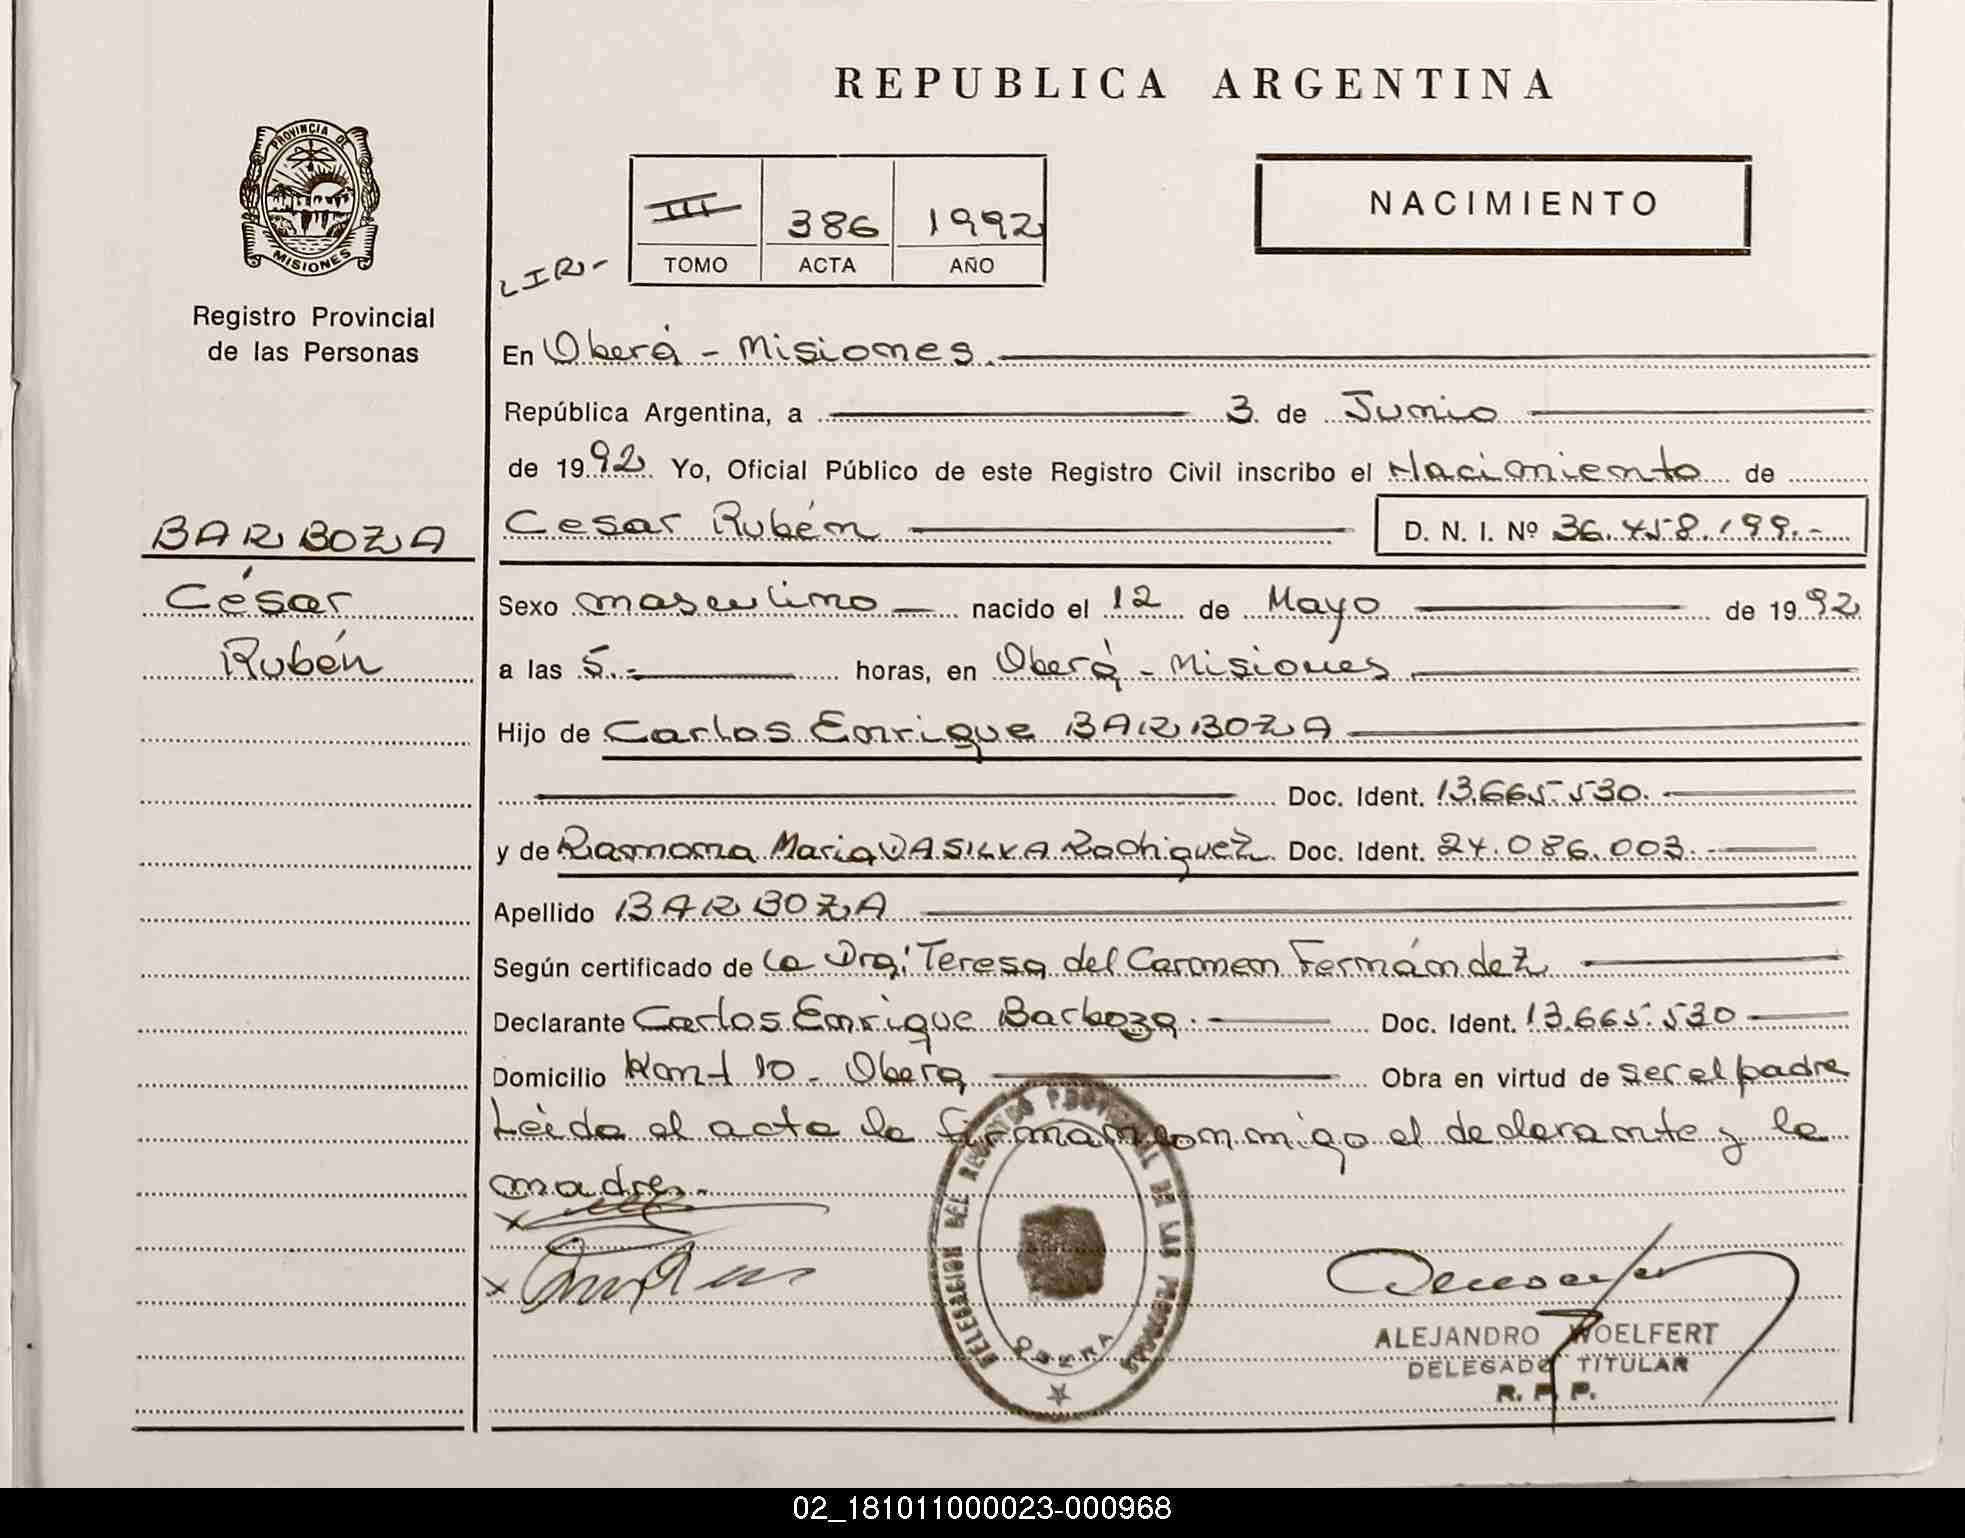 REPUBLICA ARGENTINA
PROVINCIA DE
MISIONES
Registro Provincial
de las Personas
III 386 1992
TOMO ACTA AÑO
NACIMIENTO
En Oberá - Misiones.
República Argentina, a 3 de Junio
de 1992. Yo, Oficial Público de este Registro Civil inscribo el Nacimiento de
Cesar Rubén D. N. I. Nº 36.458.199.-
BARBOZA
César
Rubén
Sexo masculino nacido el 12 de Mayo de 1992
a las 5.- horas, en Oberá - Misiones
Hijo de Carlos Enrique BARBOZA
Doc. Ident. 13.665.530.
y de Ramona Maria DA SILVA Rodriguez Doc. Ident. 24.086.003.-
Apellido BARBOZA
Según certificado de la Dra: Teresa del Carmen Fernández
Declarante Carlos Enrique Barboza.- Doc. Ident. 13.665.530
Domicilio 10 - Oberá Obra en virtud de ser el padre
Leida el acta la firman conmigo el declarante y la
madre.-
DELEGACION DEL REGISTRO PROVINCIAL DE LAS PERSONAS
OBERA
ALEJANDRO WOELFERT
DELEGADO TITULAR
R. P. P.
02_181011000023-000968